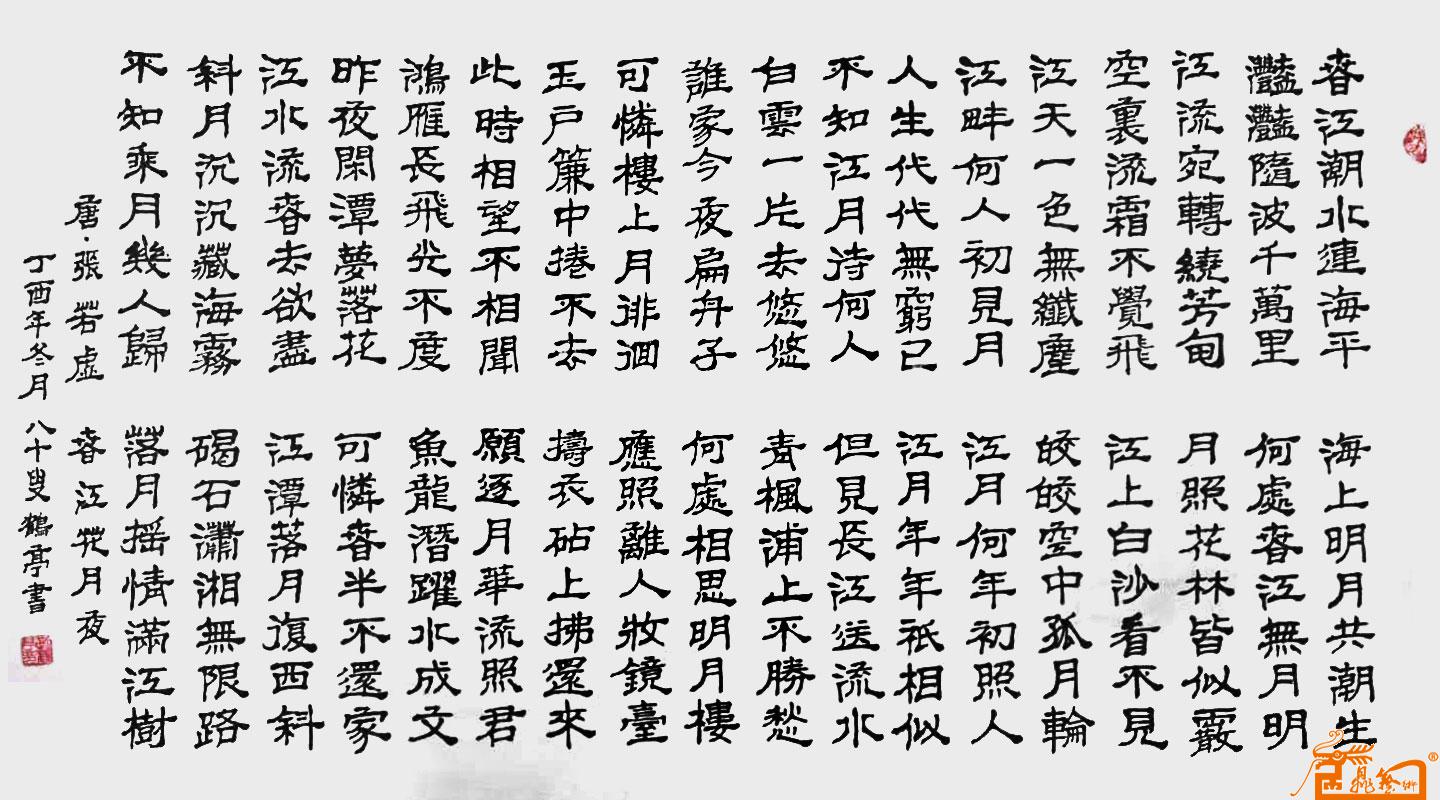 春江潮水連海平
海上明月共潮生
灩灩隨波千萬里
何處春江無月明
江流宛轉繞芳甸
月照花林皆似霰
空裏流霜不覺飛
江上白沙看不見
江天一色無纖塵
皎皎空中孤月輪
江畔何人初見月
江月何年初照人
人生代代無窮已
江月年年祇相似
不知江月待何人
但見長江送流水
白雲一片去悠悠
青楓浦上不勝愁
誰家今夜扁舟子
何處相思明月樓
可憐樓上月徘徊
應照離人妝鏡臺
玉戶簾中捲不去
擣衣砧上拂還來
此時相望不相聞
願逐月華流照君
鴻雁長飛光不度
魚龍潛躍水成文
昨夜閑潭夢落花
可憐春半不還家
江水流春去欲盡
江潭落月復西斜
斜月沉沉藏海霧
碣石瀟湘無限路
不知乘月幾人歸
落月搖情滿江樹
唐·張若虛 春江花月夜
丁酉年冬月 八十叟鶴亭書